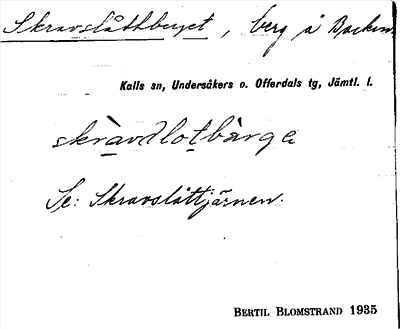 Skravslåttberget, berg å Backen
Kalls sn, Undersåkers o. Offerdals tg, Jämtl. l.
Se: Skravslåttjärnen.
BERTIL BLOMSTRAND 1935